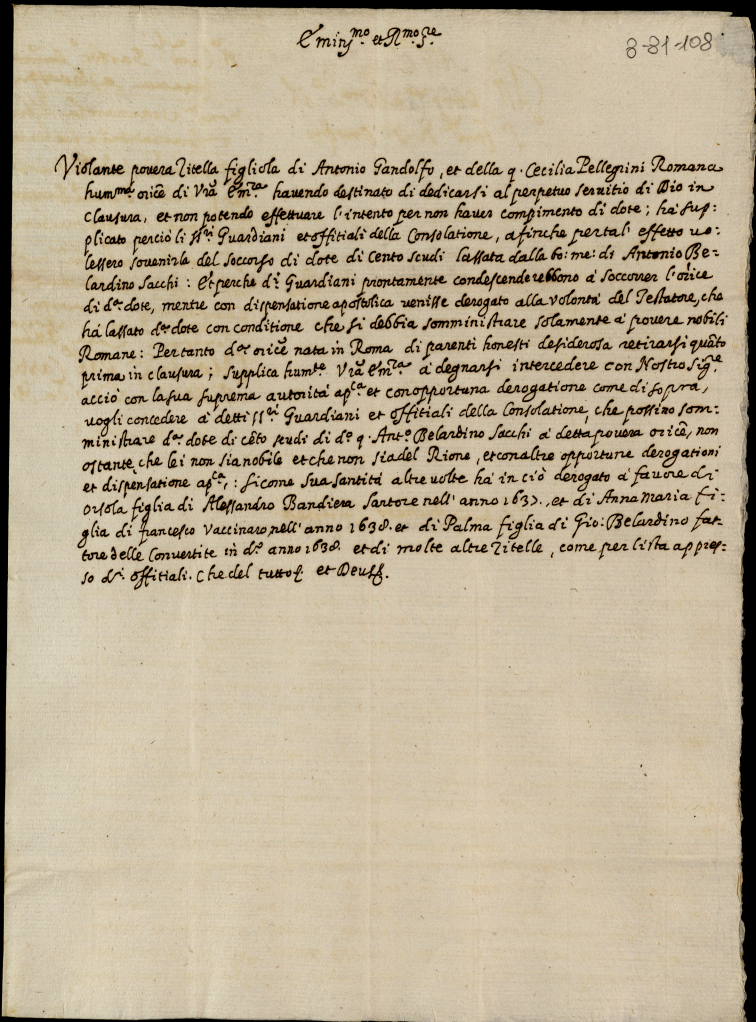 Emins^mo et R^mo S^re
3-81-108
Violante povera Zitella figliola di Antonio Gandolfo, et della q. Cecilia Pellegrini Romana
hum^ma orice di Vrã Em^za havendo destinato di dedicarsi al perpetuo servitio di Dio in
clausura, et non potendo effettuare l'intento per non haver compimento di dote; hà sup:
plicato perciò li SS^ri Guardiani et offitiali della Consolatione, a finche per tal' effetto vo:
lessero sovenirla del soccorso di dote di Cento scudi lassata dalla bo: me: di Antonio Be-
lardino Sacchi: Et perche d^i Guardiani prontamente condescenderebbono à soccorrer l'orice
di d^a dote, mentre con dispensatione apostolica venisse derogato alla volontà del Testatore, che
hà lassato d^a dote con conditione che si debbia somministrare solamente à povere nobili
Romane: Per tanto d^a orice nata in Roma di parenti honesti desiderosa retirarsi quãto
prima in clausura; supplica hum^te Vrã Em^za à degnarsi intercedere con Nostro Sig^re
acciò con la sua suprema autorità ap^ca et con opportuna derogatione come di sopra,
vogli concedere à detti SS^ri Guardiani et offitiali della Consolatione, che possino som-
ministrare d^a dote di cẽto scudi di d^o q. Ant^o Belardino Sacchi à detta povera orice, non
ostante che lei non sia nobile et che non sia del Rione, et con altre opportune derogationi
et dispensatione ap^ca: si come sua santità altre volte hà in ciò derogato à favore di
Orsola figlia di Alessandro Bandiera Sartore nell'anno 1637. et di Anna Maria fi-
glia di francesco Vaccinaro nell'anno 1638. et di Palma figlia di Gio: Belardino fat-
tore delle Convertite in d^o anno 1638. et di molte altre Zitelle, come per lista appres-
so d^i offitiali. Che del tutto et Deus.